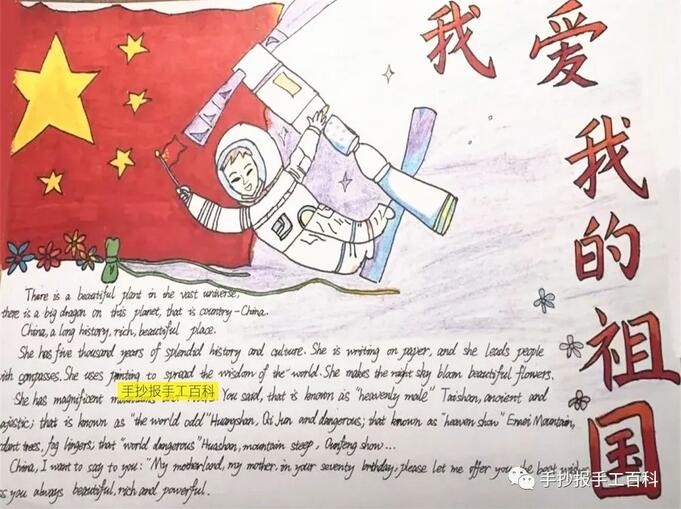 我爱我的祖国
There is a beautiful plant in the vast universe,
there is a big dragon on this planet, that is country-China.
China, a long history, rich, beautiful place.
She has five thousand years of splendid history and culture. She is writing on paper, and she leads people
with compasses. She uses printing to spread the wisdom of the world. She makes the night sky bloom beautiful flowers.
She has magnificent You said, that is known as "heavenly male" Taishan, ancient and
ajestic; that is known as "the world odd" Huangshan, Qi Jun and dangerous; that known as "heaven show" Emei Mountain,
dant trees, fog lingers; that "world dangerous" Huashan, mountain steep, show...
China, I want to say to you: "My motherland, my mother. in your seventy birthday, please let me offer you the best
s you always beautiful, rich and powerful.
手抄报手工百科
手抄报手工百科